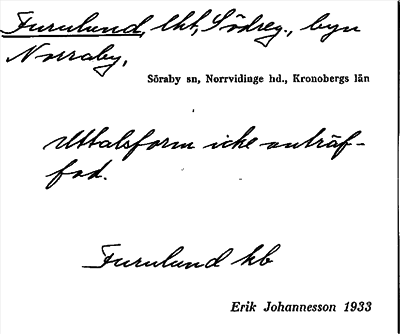 Furulund, lht, Södreg., byn
Norraby,
Söraby sn, Norrvidinge hd., Kronobergs län
Uttalsform icke anträf-
fad.
Furulund kb
Erik Johannesson 1933